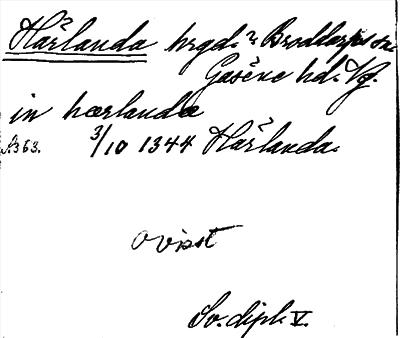 Härlanda hrgd. i Broddarps sn.
Gäsene hd. Vg.
in hærlandæ
s. 363. 3/10 1344 Härlanda.
ovisst
Sv. dipl. V.